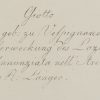 Giotto
geb. zu Vespignano
Erweckung des Laz
Annunziata nell' Are
A. Langer.